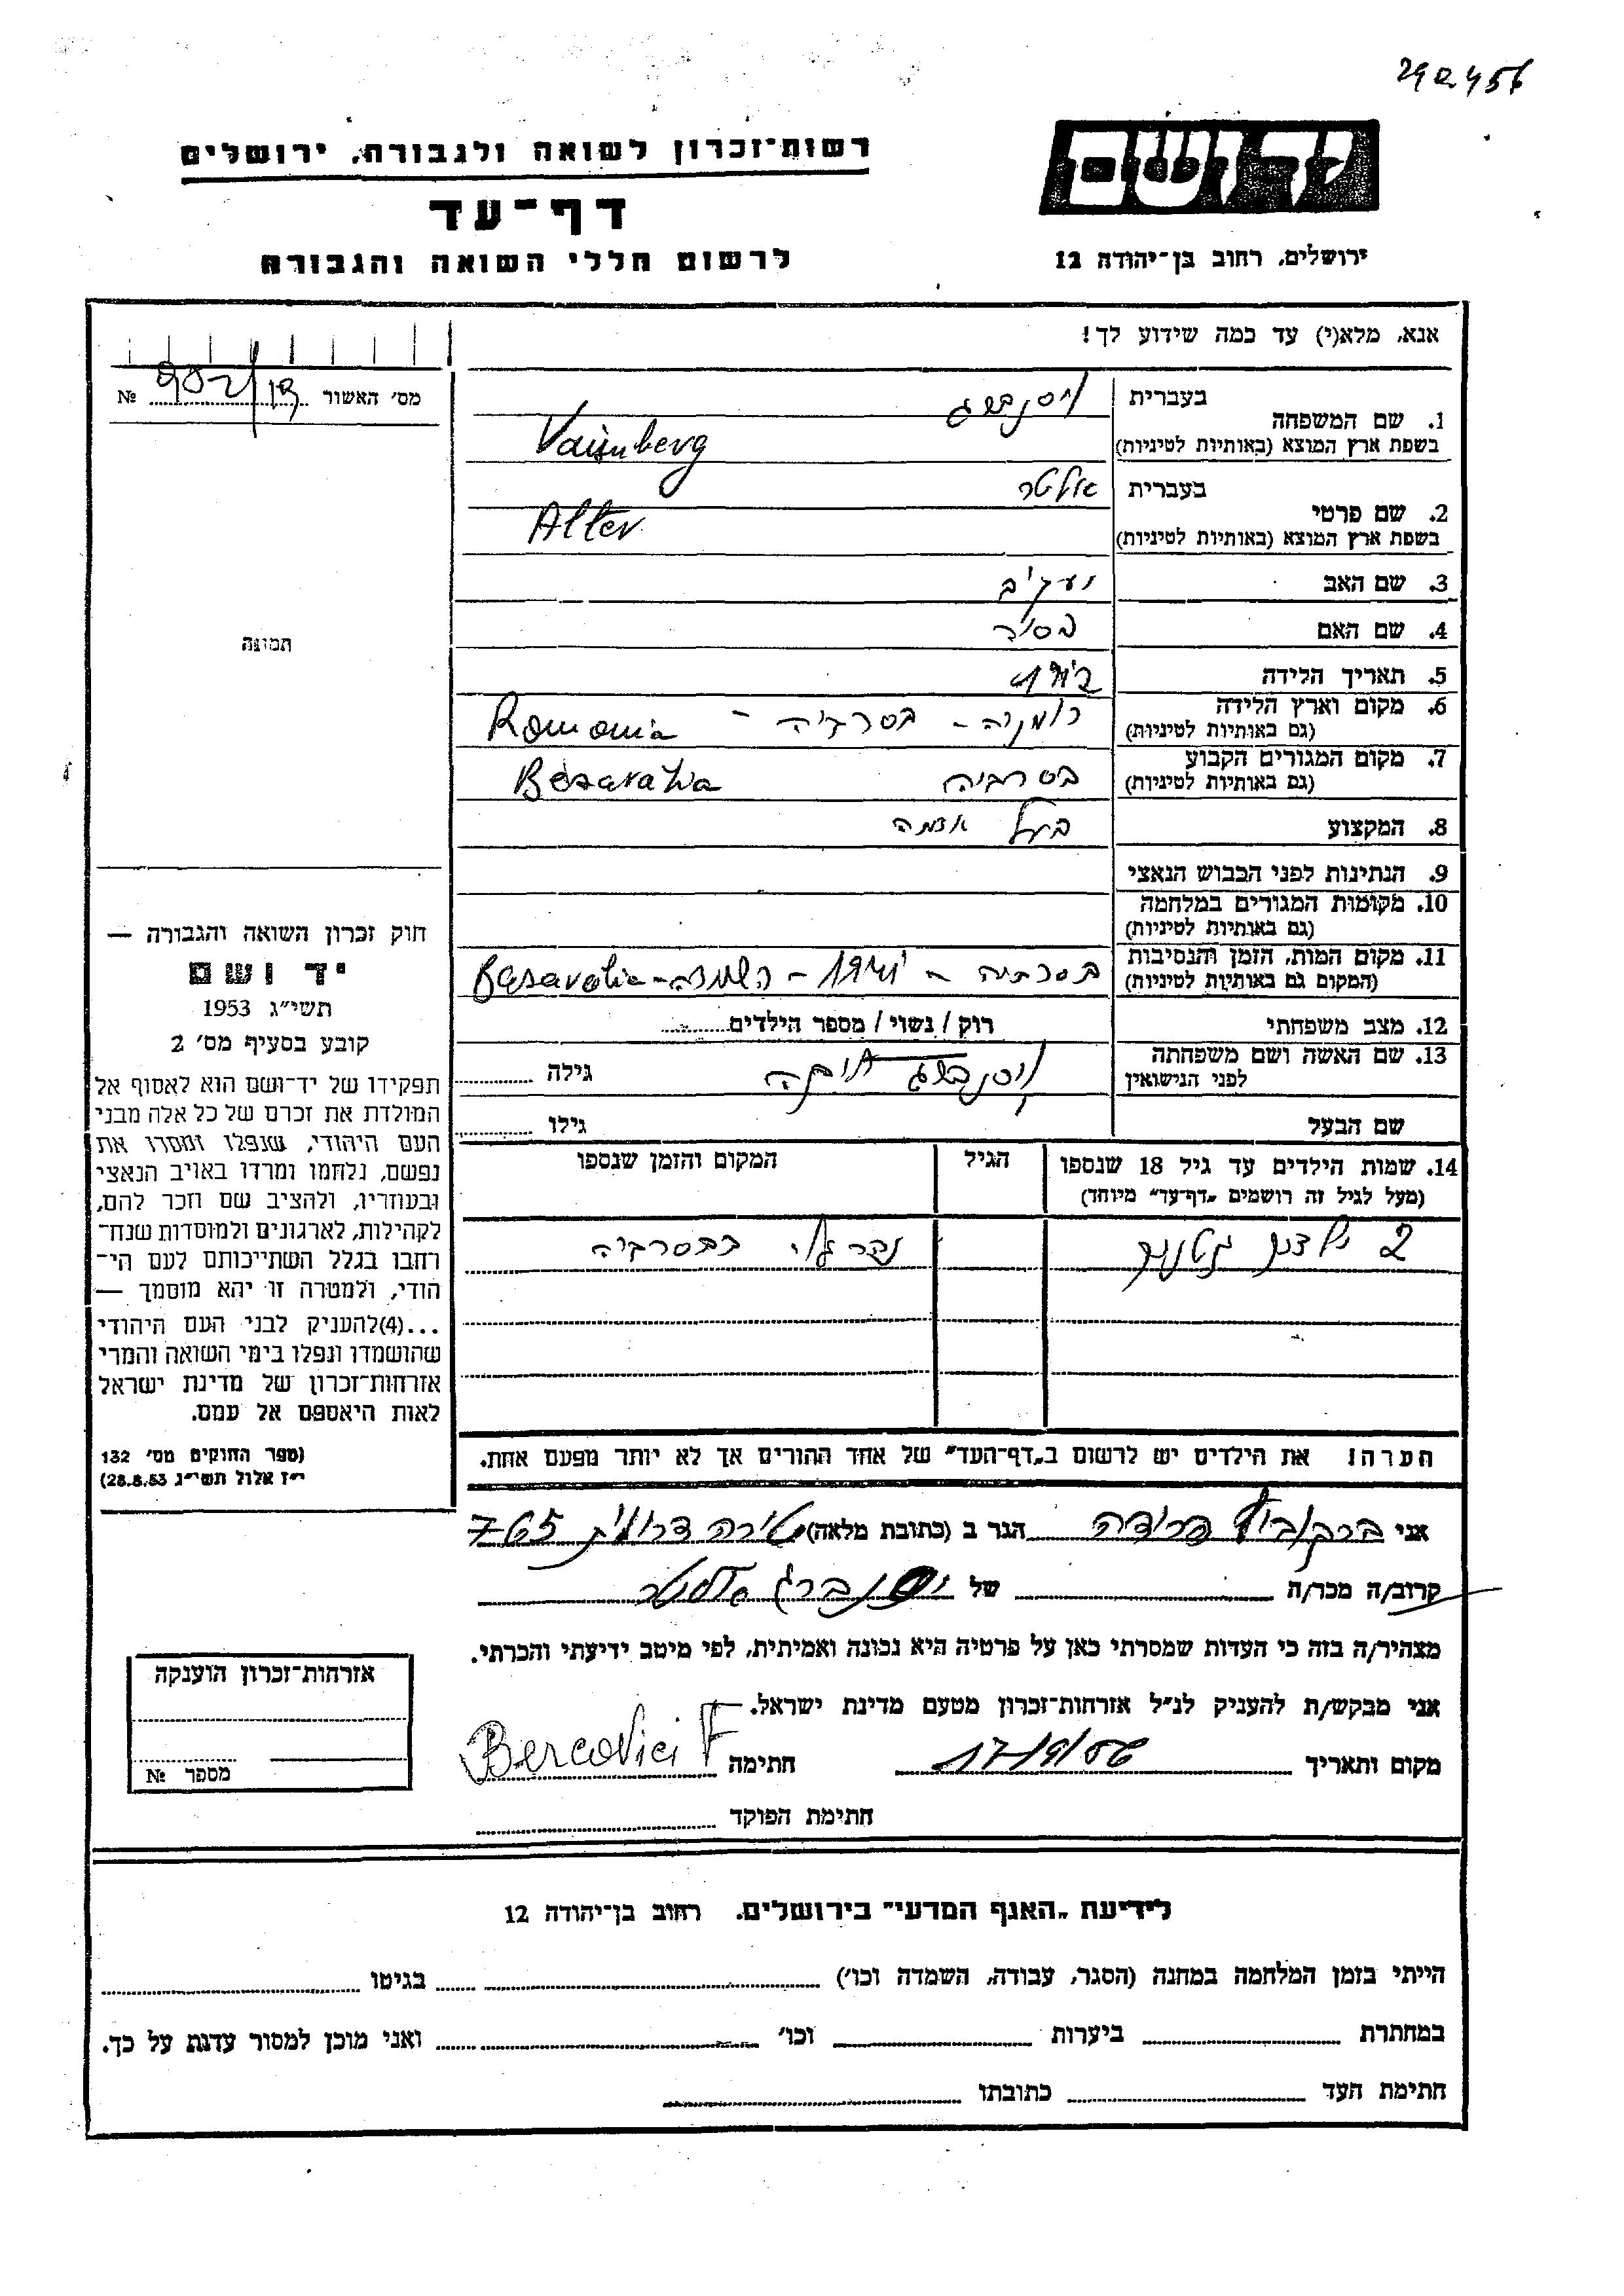 290456
רשות־זכרון לשואה ולגבורה, ירושלים
דף־עד
לרשום חללי השואה והגבורה
ידושם
ירושלים, רחוב בן־יהודה 12
אנא, מלא(י) עד כמה שידוע לך!
מס׳ האשור № 902/
1. שם המשפחה בעברית ויסנברג
בשפת ארץ המוצא (באותיות לטיניות) Vaisnberg
2. שם פרטי בעברית אלטר
בשפת ארץ המוצא (באותיות לטיניות) Alter
3. שם האב יעקב
4. שם האם פסיה
5. תאריך הלידה
6. מקום וארץ הלידה (גם באותיות לטיניות) רומניה - בסרביה - Romania
7. מקום המגורים הקבוע (גם באותיות לטיניות) בסרביה Besarabia
8. המקצוע בעל אדמה
9. הנתינות לפני הכבוש הנאצי
10. מקומות המגורים במלחמה (גם באותיות לטיניות)
11. מקום המות, הזמן והנסיבות (המקום גם באותיות לטיניות) בסרביה - 1941 - השמדה - Basarabia
12. מצב משפחתי רוק / נשוי / מספר הילדים
13. שם האשה ושם משפחתה לפני הנישואין ויסנברג גילה
שם הבעל גילו
14. שמות הילדים עד גיל 18 שנספו (מעל לגיל זה רושמים „דף־עד״ מיוחד) הגיל המקום והזמן שנספו
2 ילדים קטנים בבסרביה
הערה! את הילדים יש לרשום ב„דף־העד״ של אחד ההורים אך לא יותר מפעם אחת.
תמונה
חוק זכרון השואה והגבורה —
יד ושם
תשי״ג 1953
קובע בסעיף מס׳ 2
תפקידו של יד־ושם הוא לאסוף אל
המולדת את זכרם של כל אלה מבני
העם היהודי, שנפלו ומסרו את
נפשם, נלחמו ומרדו באויב הנאצי
ובעוזריו, ולהציב שם וזכר להם,
לקהילות, לארגונים ולמוסדות שנח־
רחבו בגלל השתייכותם לעם הי־
הודי, ולמטרה זו יהא מוסמך —
...(4)להעניק לבני העם היהודי
שהושמדו ונפלו בימי השואה והמרי
אזרחות־זכרון של מדינת ישראל
לאות היאספם אל עמם.
(ספר החוקים מס׳ 132
י״ז אלול תשי״ג 28.8.53)
אני ברקוביץ פרידה הגר ב (כתובת מלאה) טירה דרומית 765
קרוב/ה מכר/ה של ויסנברג אלטר
מצהיר/ה בזה כי העדות שמסרתי כאן על פרטיה היא נכונה ואמיתית, לפי מיטב ידיעתי והכרתי.
אני מבקש/ת להעניק לנ״ל אזרחות־זכרון מטעם מדינת ישראל.
מקום ותאריך 17/9/56 חתימה Bercovici F
חתימת הפוקד
אזרחות־זכרון הוענקה
מספר №
לידיעת „האגף המדעי״ בירושלים. רחוב בן־יהודה 12
הייתי בזמן המלחמה במחנה (הסגר, עבודה, השמדה וכו׳) בגיטו
במחתרת ביערות וכו׳ ואני מוכן למסור עדות על כך.
חתימת העד כתובתו